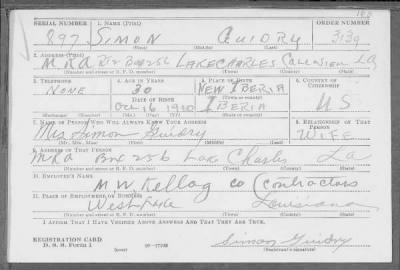 SERIAL NUMBER 1. NAME (Print) ORDER NUMBER
897 SIMON GUIDRY 3139
(First) (Middle) (Last)
2. ADDRESS (Print)
M R A Rt 2 Box 256 LAKE CHARLES Calcasieu LA
(Number and street or R. F. D. number) (Town) (County) (State)
3. TELEPHONE 4. AGE IN YEARS 5. PLACE OF BIRTH 6. COUNTRY OF CITIZENSHIP
NONE 30 NEW IBERIA
DATE OF BIRTH (Town or county)
Oct 16 1910 IBERIA U S
(Exchange) (Number) (Mo.) (Day) (Yr.) (State or country)
7. NAME OF PERSON WHO WILL ALWAYS KNOW YOUR ADDRESS 8. RELATIONSHIP OF THAT PERSON
Mrs Simon Guidry WIFE
(Mr., Mrs., Miss) (First) (Middle) (Last)
9. ADDRESS OF THAT PERSON
M R A Box 256 Lake Charles La
(Number and street or R. F. D. number) (Town) (County) (State)
10. EMPLOYER'S NAME
M W Kellog Co (Contractors
11. PLACE OF EMPLOYMENT OR BUSINESS
West Lake Louisiana
(Number and street or R. F. D. number) (Town) (County) (State)
I AFFIRM THAT I HAVE VERIFIED ABOVE ANSWERS AND THAT THEY ARE TRUE.
REGISTRATION CARD
D. S. S. Form 1 (over) 16-17105 Simon Guidry
(Registrant's signature)